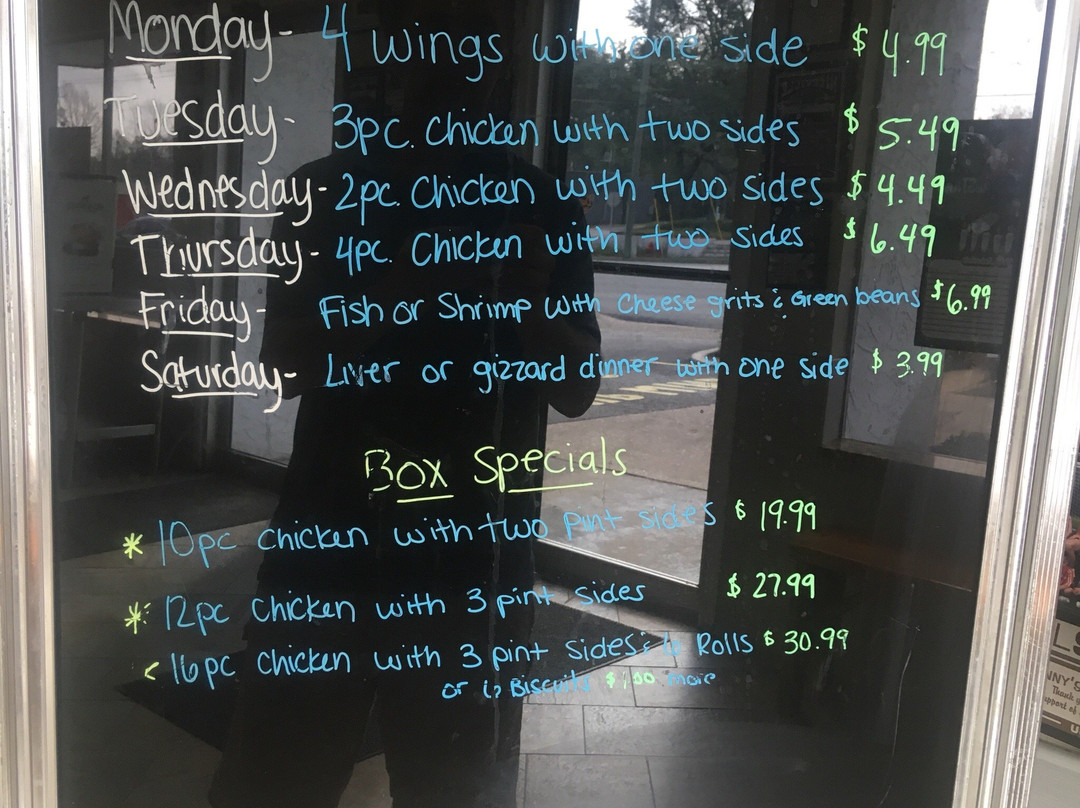 Monday- 4 wings with one side $ 4.99
Tuesday- 3pc. Chicken with two sides $ 5.49
Wednesday- 2pc. Chicken with two sides $ 4.49
Thursday- 4pc. Chicken with two sides $ 6.49
Friday- Fish or Shrimp with Cheese grits & Green beans $6.99
Saturday- Liver or gizzard dinner with one side $ 3.99
Box Specials
* 10pc chicken with two pint sides $ 19.99
* 12pc Chicken with 3 pint sides $ 27.99
< 16pc Chicken with 3 pint sides & 6 Rolls $ 30.99
or 6 Biscuits $1.00 more
NNY'S
Thank
upport of